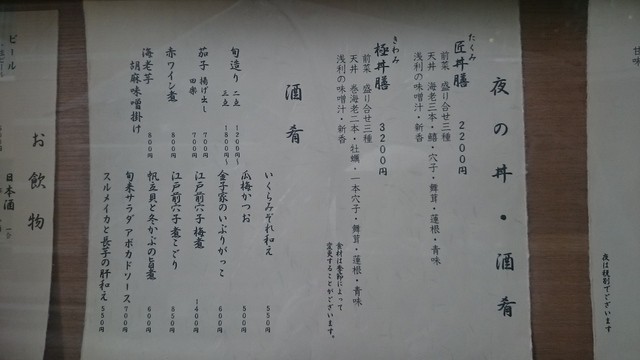 甘味
夜は規別でございます
夜の丼・酒肴
たくみ
匠丼膳 2200円
前菜 盛り合せ三種
天丼 海老二本・鱚・穴子・舞茸・蓮根・青味
浅利の味噌汁・新香
きわみ
極丼膳 3200円
前菜 盛り合せ三種
天丼 巻海老二本・牡蠣・一本穴子・舞茸・蓮根・青味
浅利の味噌汁・新香
食材は季節によって
変更することがございます。
酒肴
旬造り 二点 1200円~
三点 1800円~
茄子 揚げ出し 700円
田楽 700円
赤ワイン煮 800円
海老芋 胡麻味噌掛け 800円
いくらみぞれ和え 550円
瓜梅かつお 500円
金子家のいぶりがっこ 600円
江戸前穴子 梅煮 1400円
江戸前穴子 煮こごり 850円
帆立貝と冬かぶの旨煮 600円
旬菜サラダ アボカドソース 700円
スルメイカと長芋の肝和え 550円
お飲物
ビール
日本酒 一合